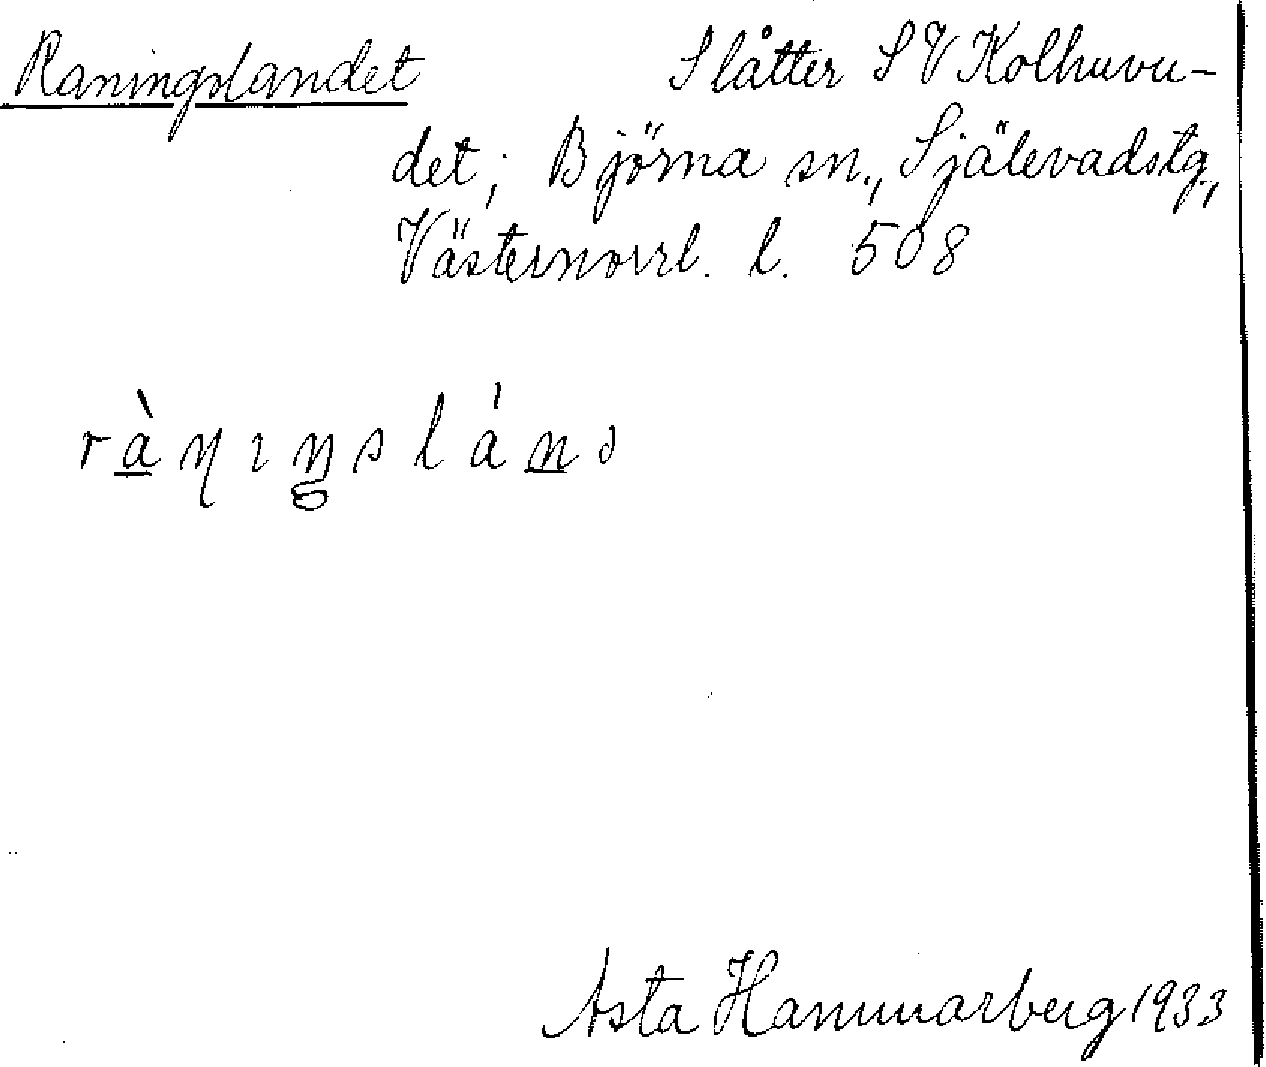 Raningslandet Slåtter SV Kolhuvu-
det; Björna sn., Själevadstg,
Västernorrl. l. 508
Asta Hammarberg 1933